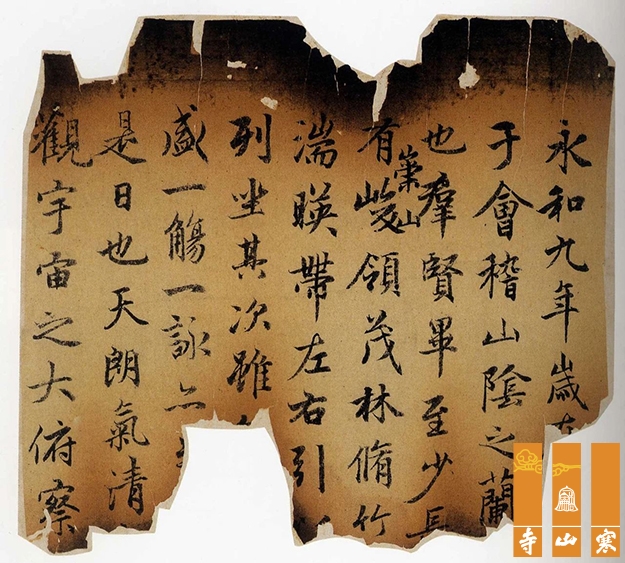 永和九年歲在
于會稽山陰之蘭
也羣賢畢至少長
有崇山峻領茂林脩竹
湍暎帶左右引
列坐其次雖
盛一觴一詠亦
是日也天朗氣清
觀宇宙之大俯察
寒山寺